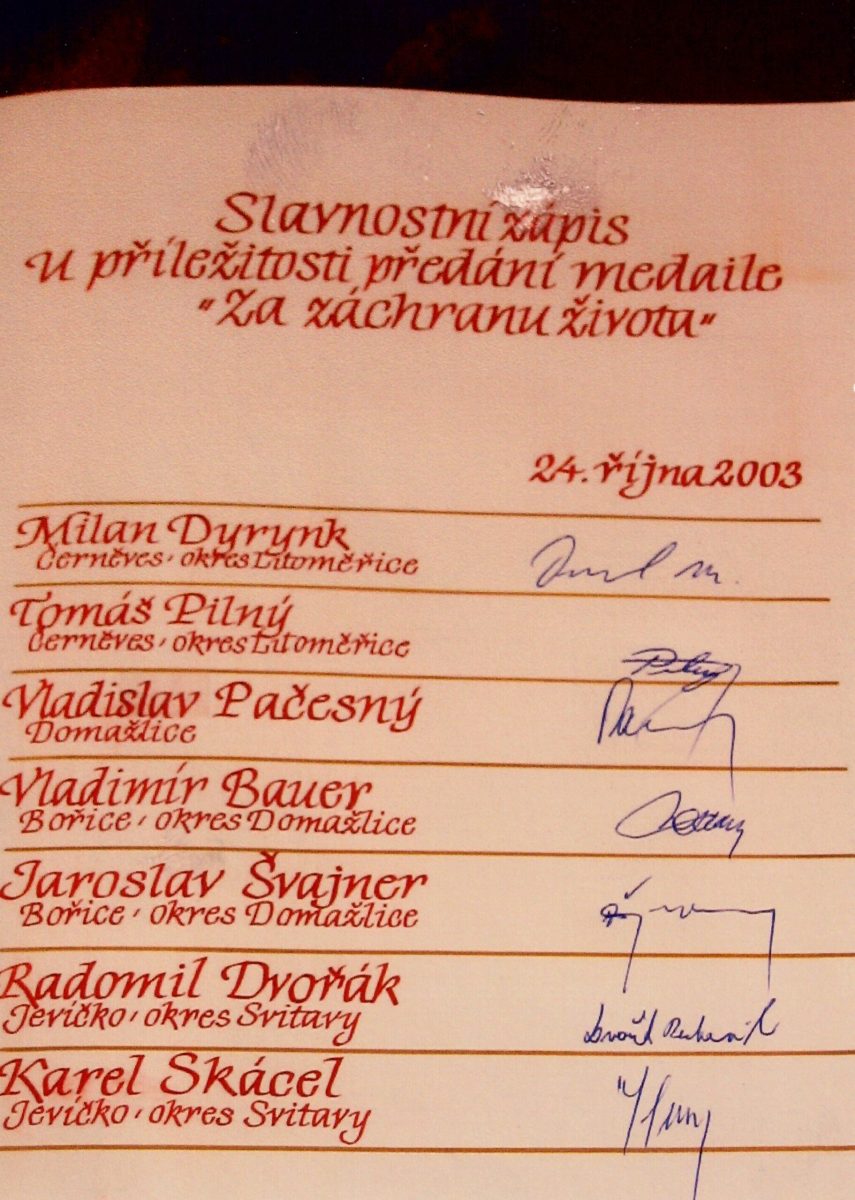 Slavnostní zápis
u příležitosti předání medaile
"Za záchranu života"
24. října 2003
Milan Dyrynk
Černěves, okres Litoměřice
Tomáš Pilný
Černěves, okres Litoměřice
Vladislav Pačesný
Domažlice
Vladimír Bauer
Bořice, okres Domažlice
Jaroslav Švajner
Bořice, okres Domažlice
Radomil Dvořák
Jevíčko, okres Svitavy
Karel Skácel
Jevíčko, okres Svitavy